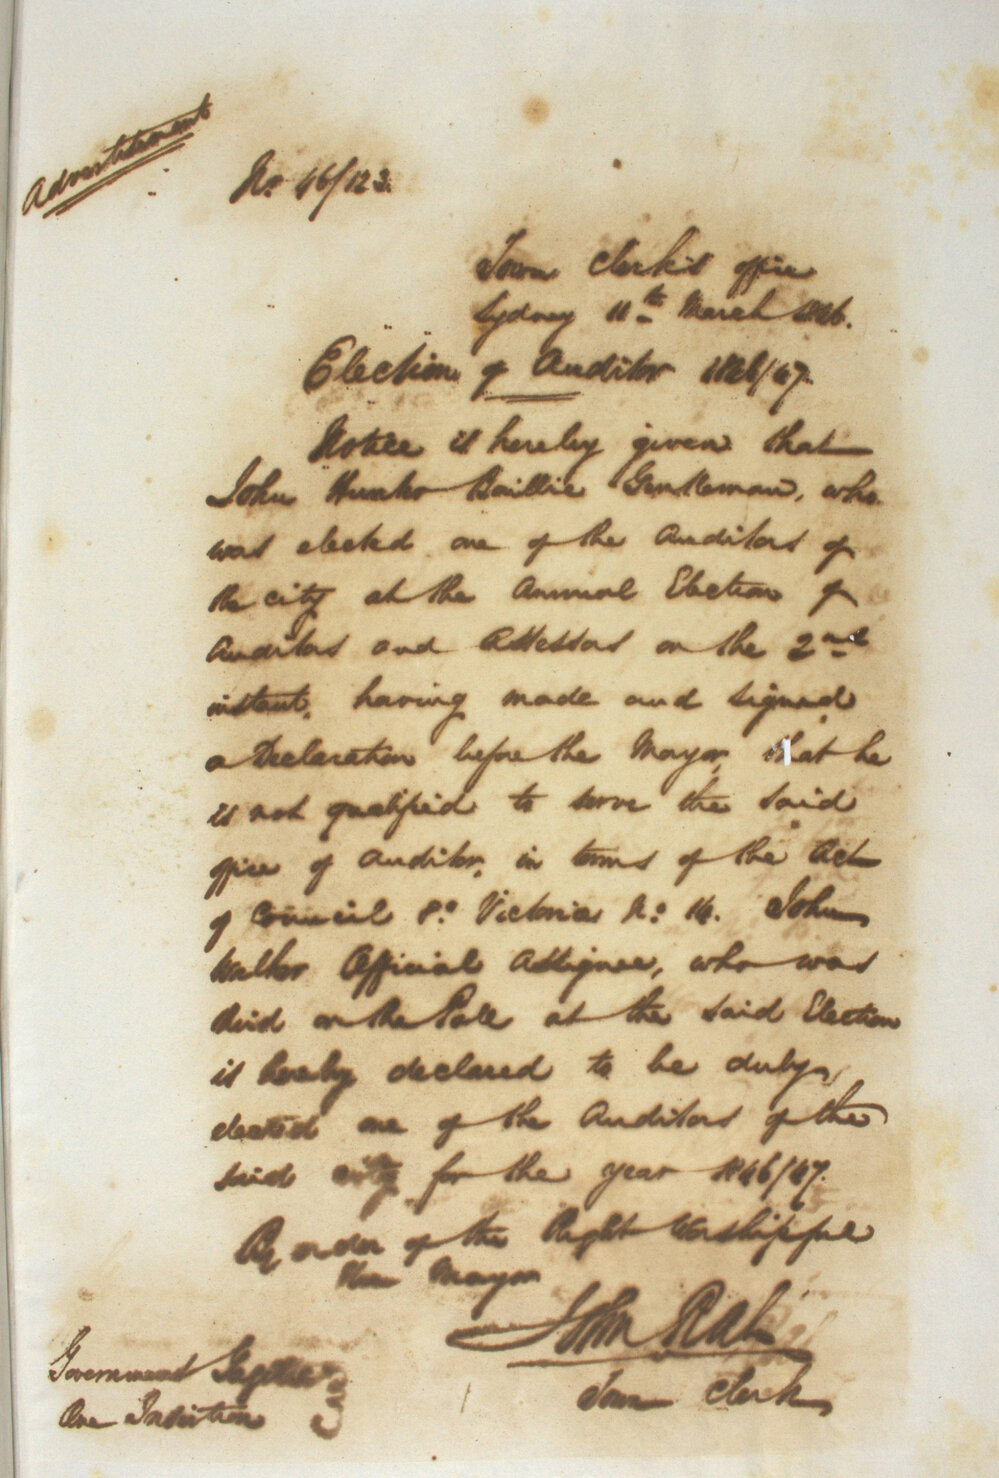 Advertisement
No. 46/123.
Town Clerk's office
Sydney 11th March 1846.
Election of Auditor 1846/47.
Notice is hereby given that
John Baillie Gentleman, who
was elected one of the Auditors of
the city at the Annual Election of
Auditors and Assessors on the 2nd
instant, having made and signed
a Declaration before the Mayor, that he
is not qualified to serve the said
office of Auditor, in terms of the Act
of Council 8o Victoria No. 16. John
Walker Official Assignee, who was
third on the Poll at the said Election
is hereby declared to be duly
elected one of the Auditors of the
said city for the year 1846/47.
By order of the Right Worshipful
the Mayor
John Rae
Town Clerk
Government Gazette
One Insertion